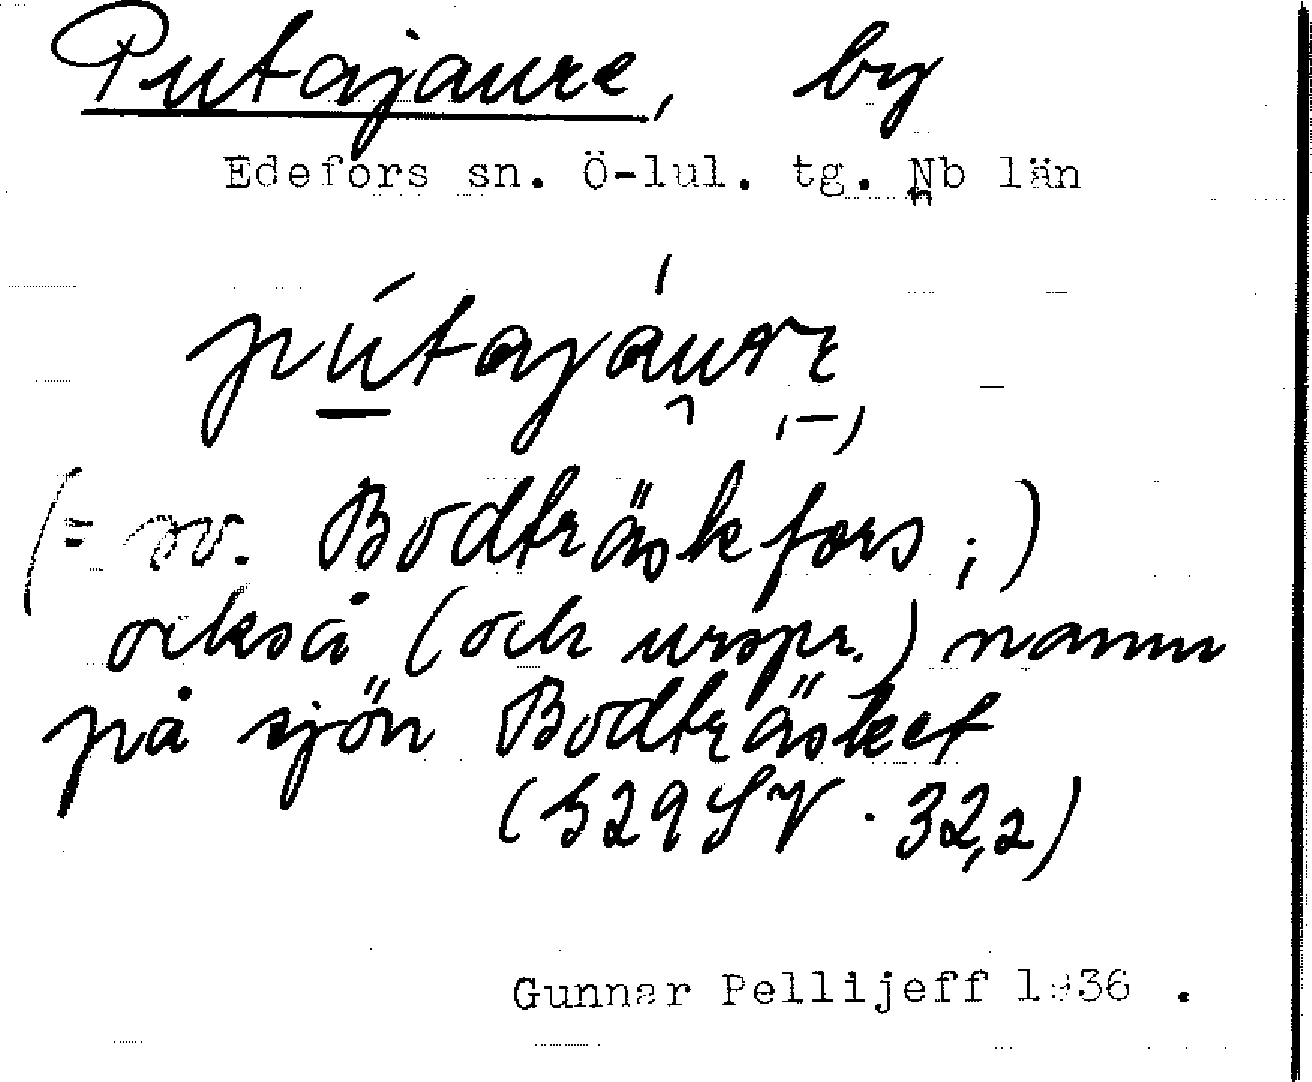 Putajaure, by
Edefors sn. Ö-lul. tg. Nb län
pútajáurɛ
(= sv. Bodträskfors;)
också (och urspr.) namn
på sjön Bodträsket
(529 SV · 32,2)
Gunnar Pellijeff 1936.